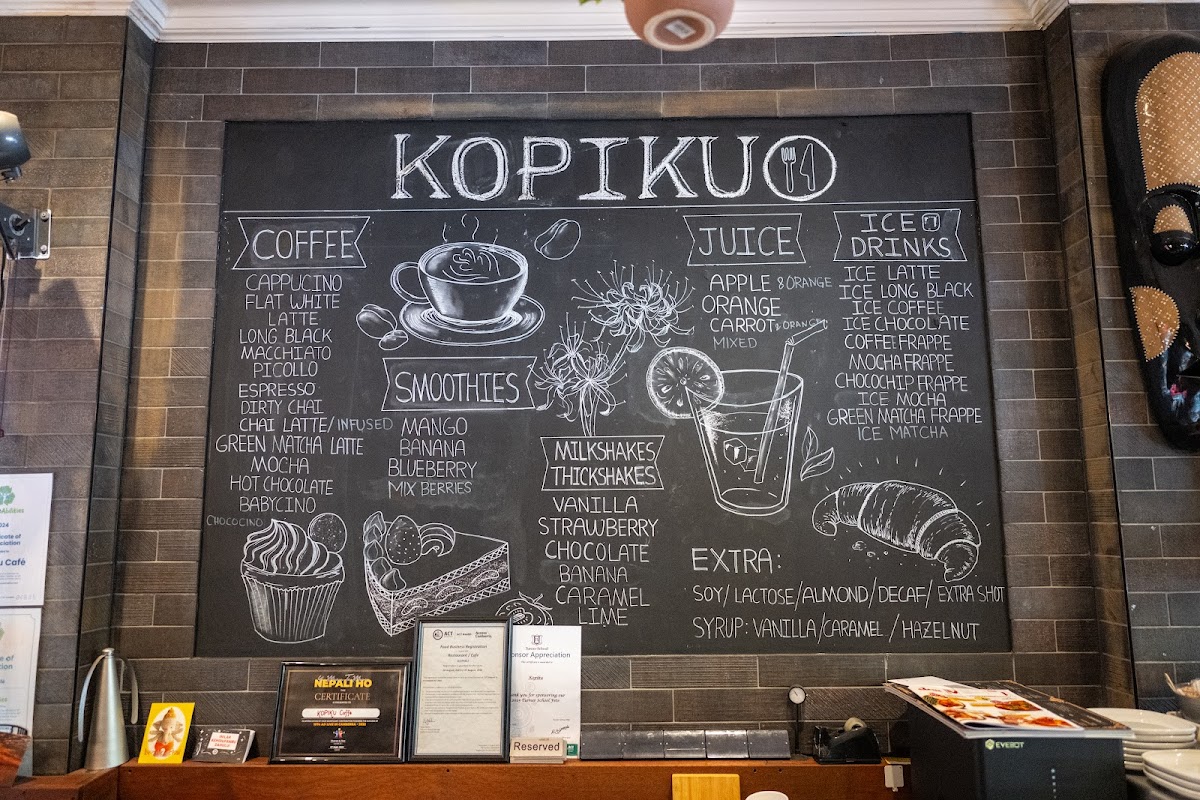 KOPIKU
COFFEE
CAPPUCINO
FLAT WHITE
LATTE
LONG BLACK
MACCHIATO
PICOLLO
ESPRESSO
DIRTY CHAI
CHAI LATTE/INFUSED
GREEN MATCHA LATTE
MOCHA
HOT CHOCOLATE
BABYCINO
CHOCOCINO
SMOOTHIES
MANGO
BANANA
BLUEBERRY
MIX BERRIES
MILKSHAKES/
THICKSHAKES
VANILLA
STRAWBERRY
CHOCOLATE
BANANA
CARAMEL
LIME
JUICE
APPLE & ORANGE
ORANGE
CARROT & ORANGE
MIXED
ICE
DRINKS
ICE LATTE
ICE LONG BLACK
ICE COFFEE
ICE CHOCOLATE
COFFEE FRAPPE
MOCHA FRAPPE
CHOCOCHIP FRAPPE
ICE MOCHA
GREEN MATCHA FRAPPE
ICE MATCHA
EXTRA:
SOY/LACTOSE/ALMOND/DECAF/EXTRA SHOT
SYRUP: VANILLA/CARAMEL/HAZELNUT
NEPALI HO
CERTIFICATE
KOPIKU Caffe
ACT
Food Business Registration
Restaurant / Cafe
Sponsor Appreciation
Kopiku
Reserved
EVEBOT